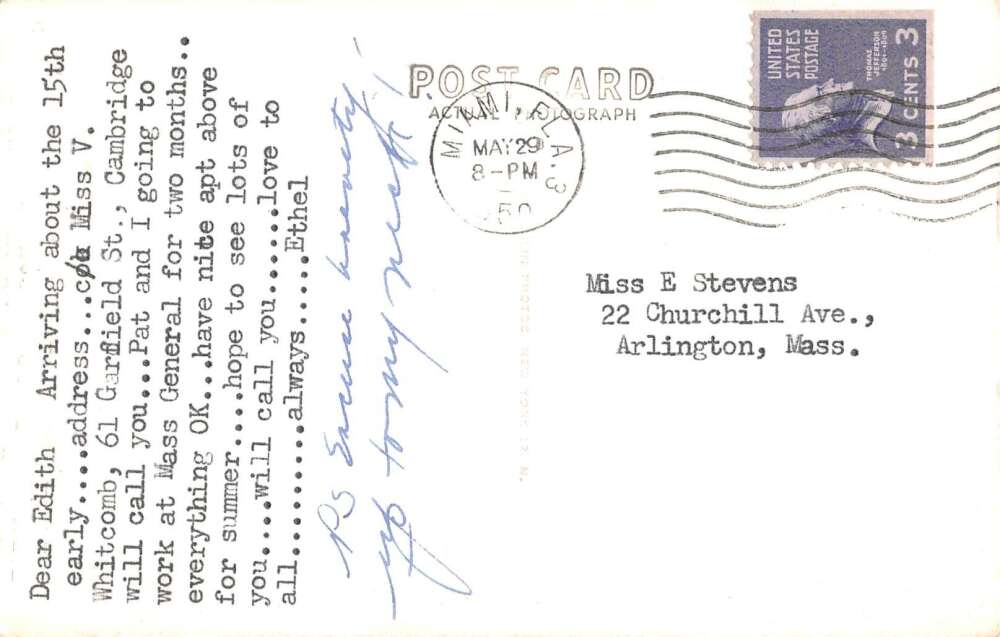 Dear Edith Arriving about the 15th
early....address...c/o Miss V.
Whitcomb, 61 Garfield St., Cambridge
will call you...Pat and I going to
work at Mass General for two months..
everything OK...have nite apt above
for summer....hope to see lots of
you....will call you......love to
all..........always.....Ethel
PS Excuse brevity
up to my neck!
POST CARD
ACTUAL PHOTOGRAPH
MIAMI, FLA. 3
MAY 29
8-PM
UNITED
STATES
POSTAGE
THOMAS
JEFFERSON
1801-1809
3 CENTS 3
Miss E Stevens
22 Churchill Ave.,
Arlington, Mass.